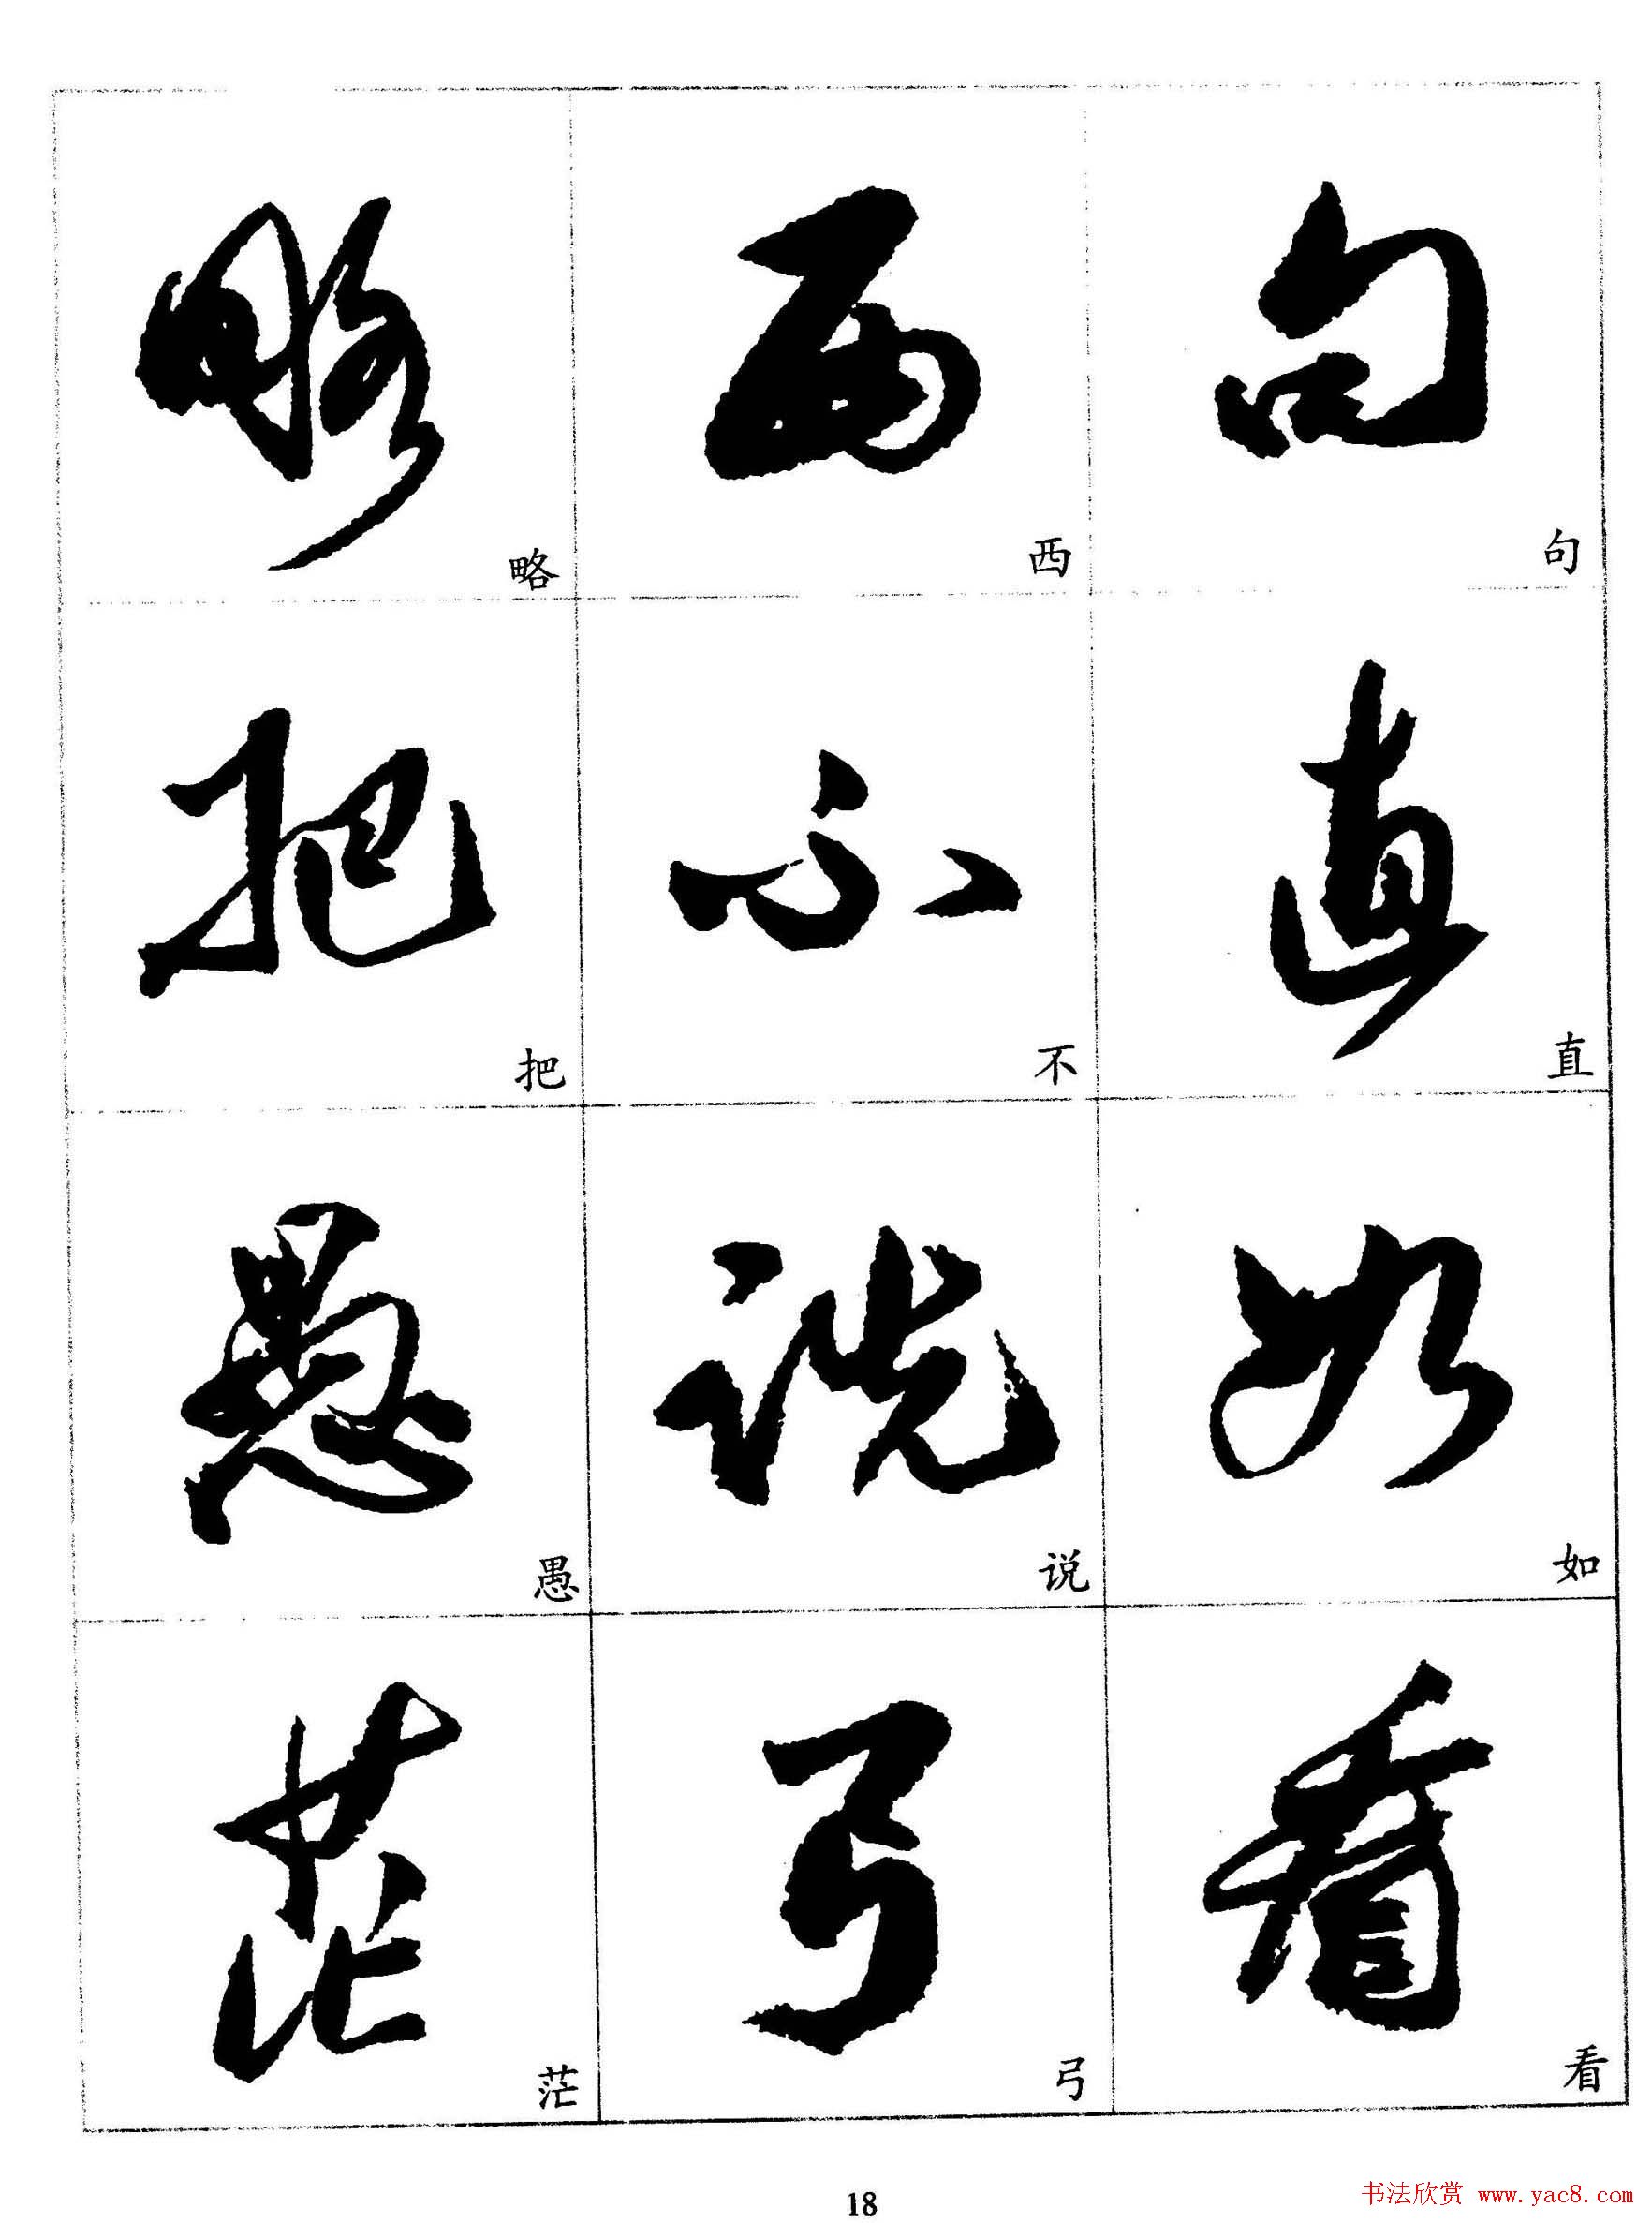 句直如看
句直如看
西不说弓
西不说弓
略把愚茫
略把愚茫
18
书法欣赏 www.yac8.com